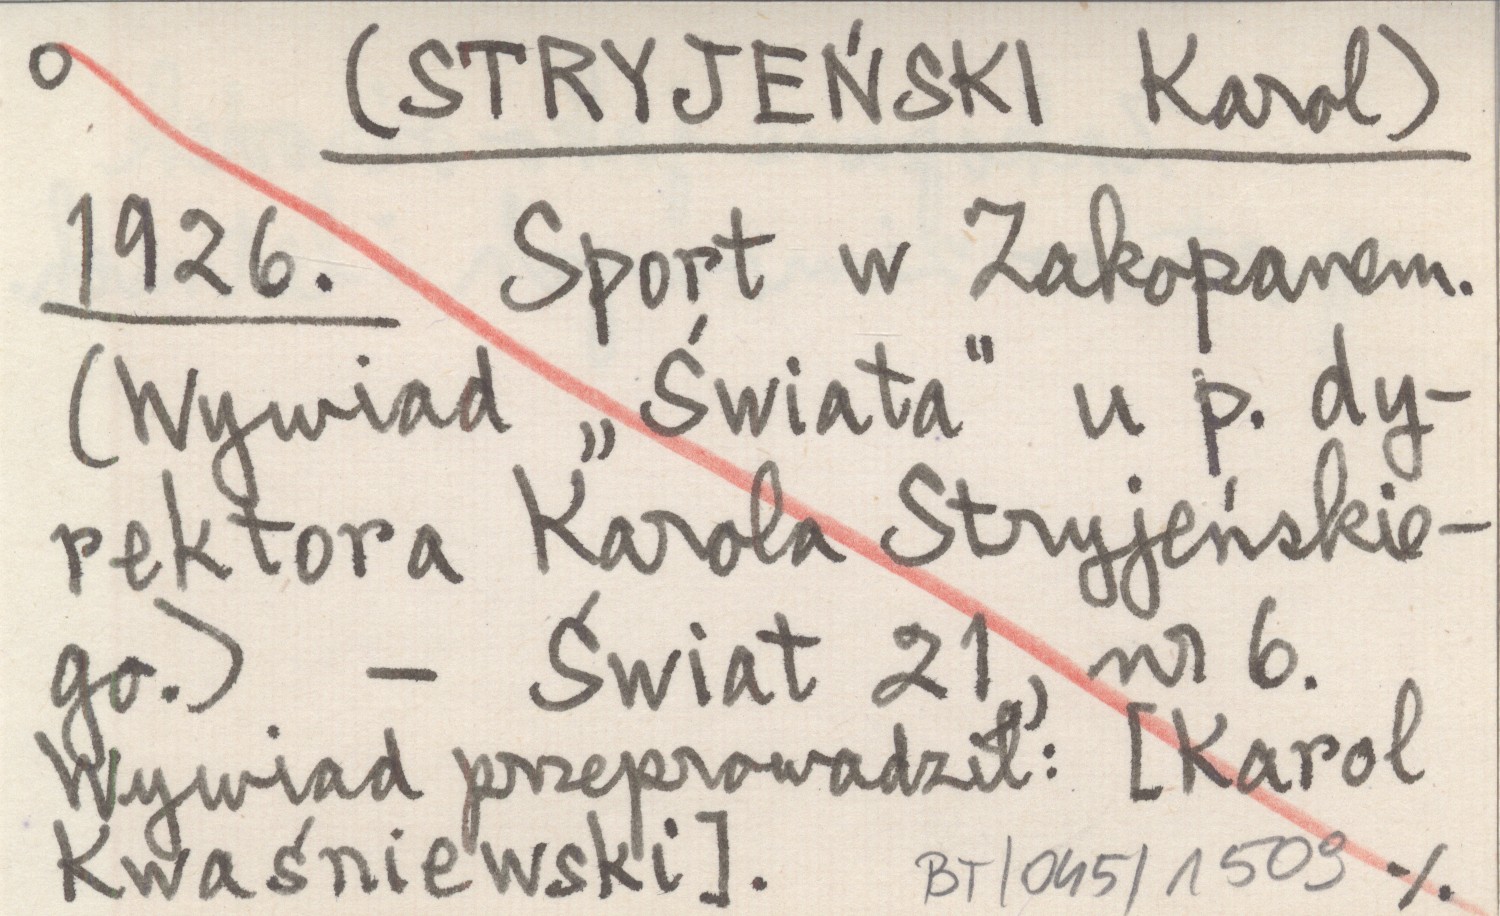 o (STRYJEŃSKI Karol)
1926. Sport w Zakopanem.
(Wywiad „Świata" u p. dy-
rektora Karola Stryjeńskie-
go.) – Świat 21, nr 6.
Wywiad przeprowadził: [Karol
Kwaśniewski].
BT/045/1509 ./.